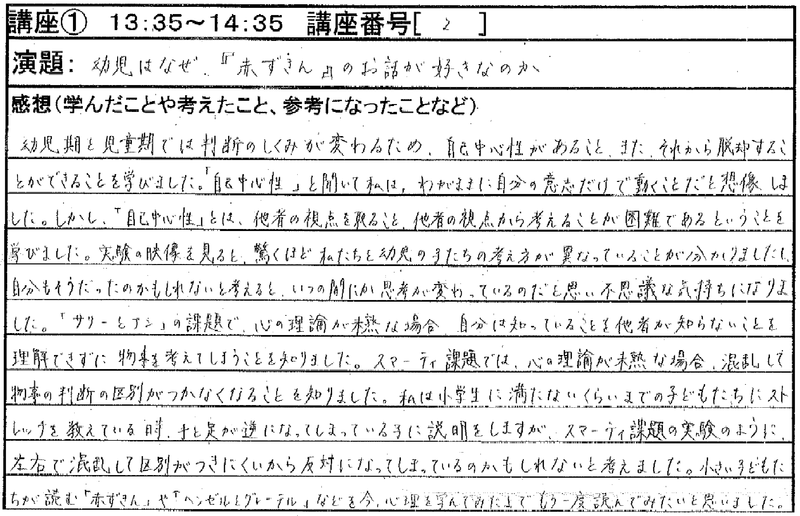 講座① 13:35～14:35 講座番号[ 2 ]
演題: 幼児はなぜ、『赤ずきん』のお話が好きなのか
感想(学んだことや考えたこと、参考になったことなど)
幼児期と児童期では判断のしくみが変わるため、自己中心性があること、また、それから脱却するこ
とができることを学びました。「自己中心性」と聞いて私は、わがままに自分の意志だけで動くことだと想像しま
した。しかし、「自己中心性」とは、他者の視点を取ること、他者の視点から考えることが困難であるということを
学びました。実験の映像を見ると、驚くほど私たちと幼児の子たちの考え方が異なっていることが分かりましたし、
自分もそうだったのかもしれないと考えると、いつの間にか思考が変わっているのだと思い不思議な気持ちになりま
した。「サリーとアン」の課題で、心の理論が未熟な場合、自分は知っていることを他者が知らないことを
理解できずに物事を考えてしまうことを知りました。スマーティ課題では、心の理論が未熟な場合、混乱して
物事の判断の区別がつかなくなることを知りました。私は小学生に満たないくらいまでの子どもたちにスト
レッチを教えている時、手と足が逆になってしまっている子に説明をしますが、スマーティ課題の実験のように、
左右で混乱して区別がつきにくいから反対になってしまっているのかもしれないと考えました。小さい子どもた
ちが読む「赤ずきん」や「ヘンゼルとグレーテル」などを今、心理を学んでみた上でもう一度読んでみたいと思いました。